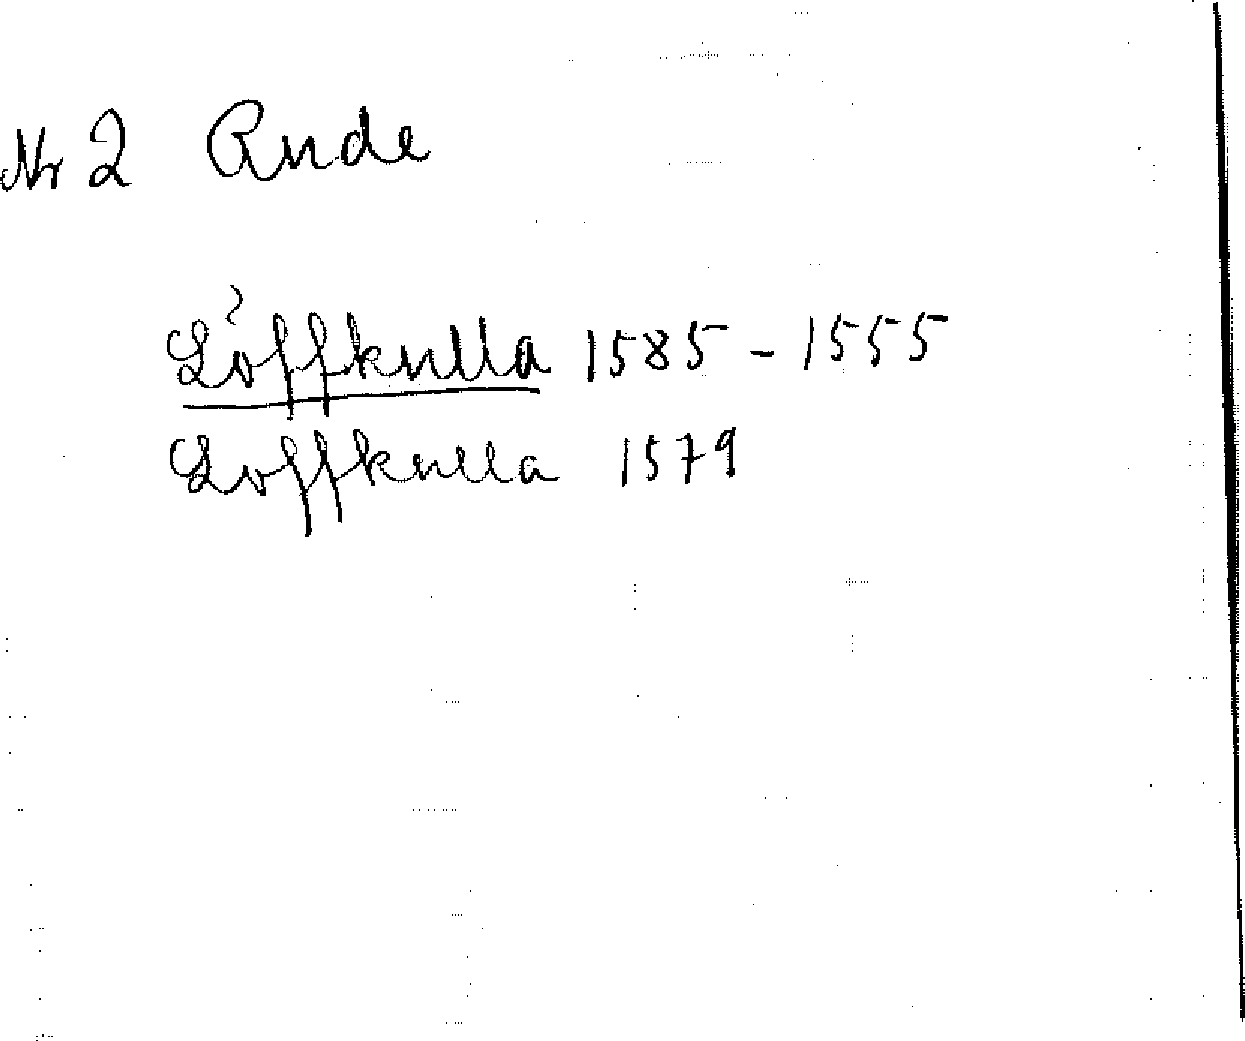 Nr 2 Rude
Löffkulla 1585 - 1555
Loffkulla 1579